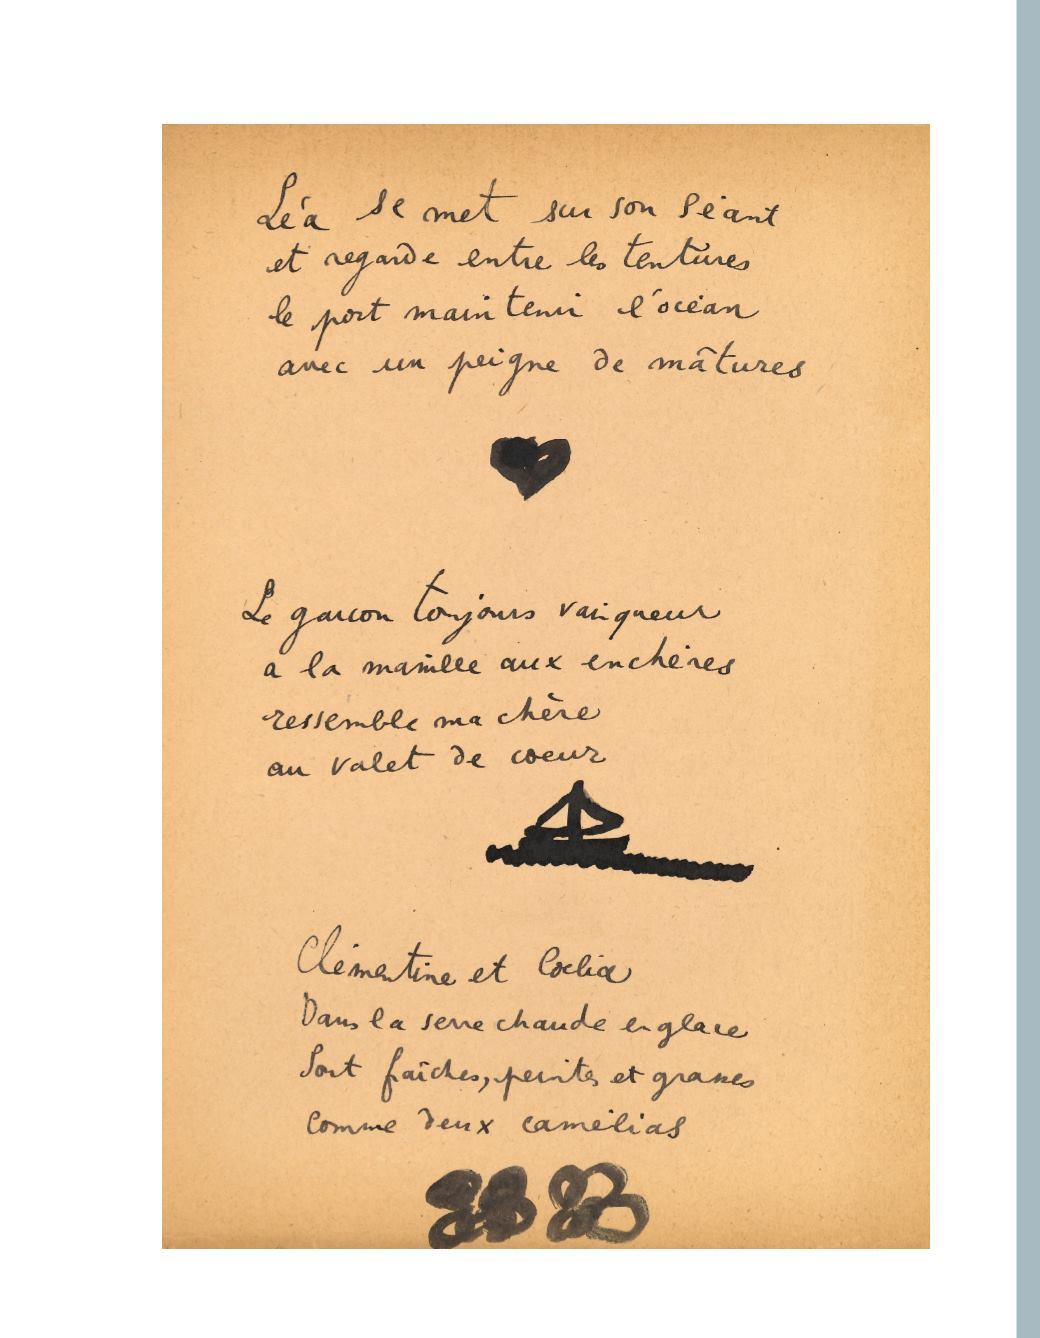 Léa se met sur son séant
et regarde entre les tentures
le port maintenir l'océan
avec un peigne de mâtures
Le garcon toujours vainqueur
a la manille aux enchères
ressemble ma chère
au valet de coeur
Clémentine et Coelia
Dans la serre chaude en glace
Sont faîches, peintes et grasses
comme deux camélias